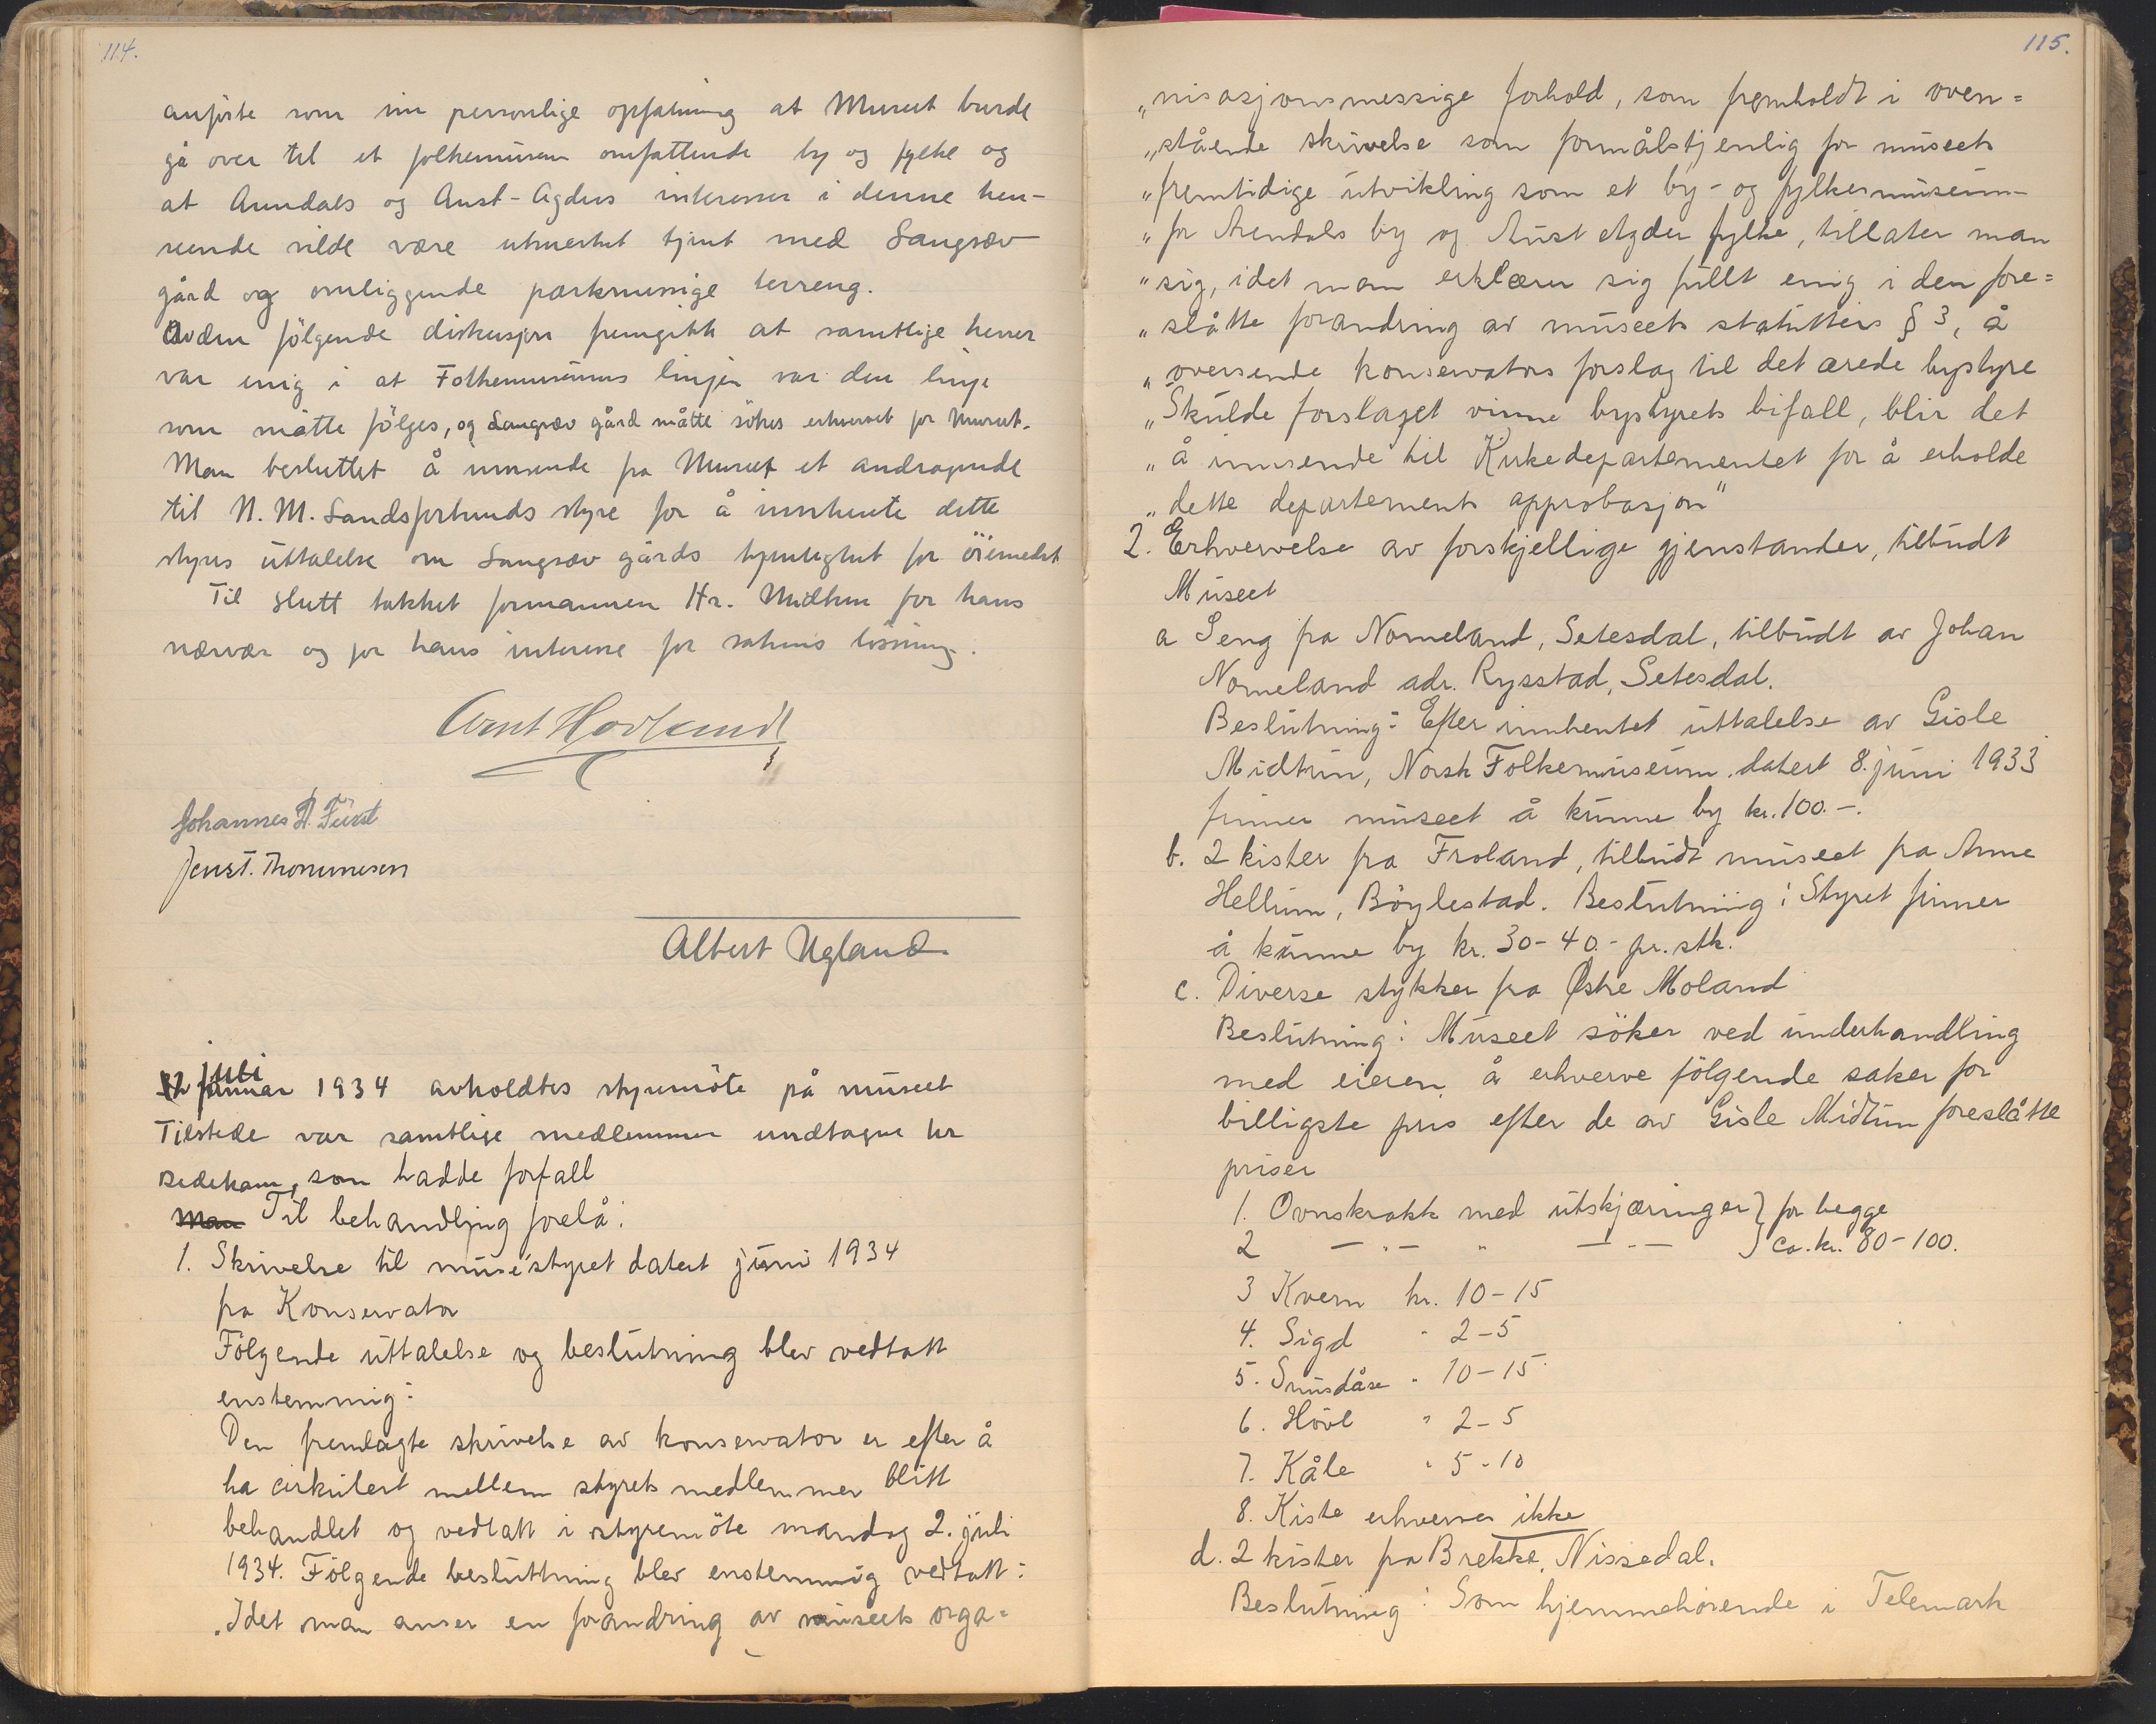 114.
anførte som sin personlige opfatning at Museet burde
gå over til et folkemuseum omfattende by og fylke og
at Arendals og Aust-Agders interesser i denne hen-
seende vilde være utmerket tjent med Langsæv
gård og omliggende parkmessige terreng.
Av den følgende diskusjon fremgikk at samtlige herrer
var enig i at Folkemuseums linjen var den linje
som måtte følges, og Langsæv gård måtte søkes erhvervet for Museet.
Man besluttet å innsende fra Museet et andragende
til N.M. Landsforbunds styre for å innhente dette
styres uttalelse om Langsæv gårds tjenlighet for øiemedet.
Til slutt takket formannen Hr. Midttun for hans
nærvær og for hans interesse for sakens løsning.
Arnt Hovlandt
Johannes A. Fürst
Just. Thommesen
Albert Ugland
juli
2 januar 1934 avholdtes styremöte på museet
Tilstede var samtlige medlemmer undtagen hr
Bedekam, som hadde forfall
Man Til behandling forelå:
1. Skrivelse til musé styret datert juni 1934
fra Konservator
Følgende uttalelse og beslutning blev vedtatt
enstemmig:
Den fremlagte skrivelse av konservator er efter å
ha cirkulert mellem styrets medlemmer blitt
behandlet og vedtatt i styremöte mandag 2. juli
1934. Følgende besluttning blev enstemmig vedtatt:
"Idet man anser en forandring av museets orga=
115.
"nisasjonsmessige forhold, som fremholdt i oven=
"stående skrivelse som formålstjenlig for museets
"fremtidige utvikling som et by- og fylkesmuseum
"for Arendals by og Aust Agder fylke, tillater man
"sig, idet man erklærer sig fullt enig i den fore=
"slåtte forandring av museets statutters § 3, å
"oversende konservators forslag til det ærede bystyre
"Skulde forslaget vinne bystyrets bifall, blir det
"å innsende til Kirkedepartementet for å erholde
"dette departements approbasjon"
2. Erhvervelse av forskjellige gjenstander, tilbudt
Museet
a Seng fra Nomeland, Setesdal, tilbudt av Johan
Nomeland adr. Rysstad, Setesdal.
Beslutning: Efter innhentet uttalelse av Gisle
Midtun, Norsk Folkemuseum, datert 8. juni 1933
finner museet å kunne by kr. 100.-.
b. 2 kister fra Froland, tilbudt museet fra Anne
Hellum, Böylestad. Beslutning: Styret finner
å kunne by kr. 30-40.- pr. stk.
c. Diverse stykker fra Østre Moland
Beslutning: Museet söker ved underhandling
med eieren å erhverve følgende saker for
billigste pris efter de av Gisle Midtun foreslåtte
priser
1. Ovnskrakk med utskjæringer } for begge
2 — " — " — " — } ca. kr. 80-100.
3 Kvern kr. 10-15
4. Sigd " 2-5
5. Snusdåse " 10-15
6. Høvl " 2-5
7. Kåle " 5-10
8. Kiste erhverves ikke
d. 2 kister fra Brekke, Nissedal.
Beslutning: Som hjemmehørende i Telemark